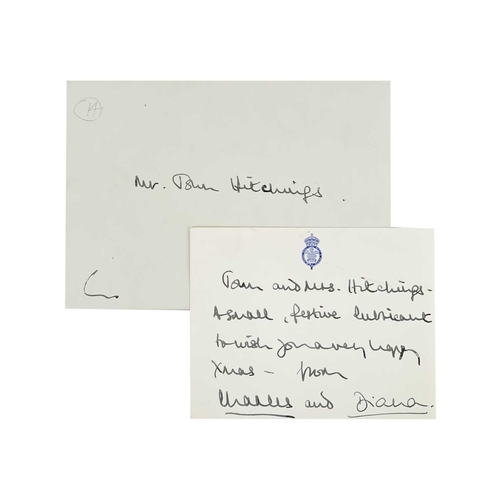 Mr. Tom Hitchings.
Tom and Mrs. Hitchings -
A small, festive lubricant
to wish you a very happy
Xmas - from
Charles and Diana.